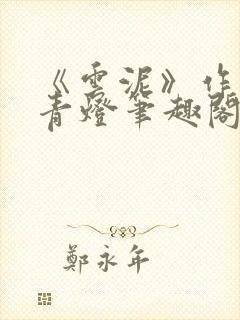 《雲泥》作
青燈筆趣閣
鄭永年